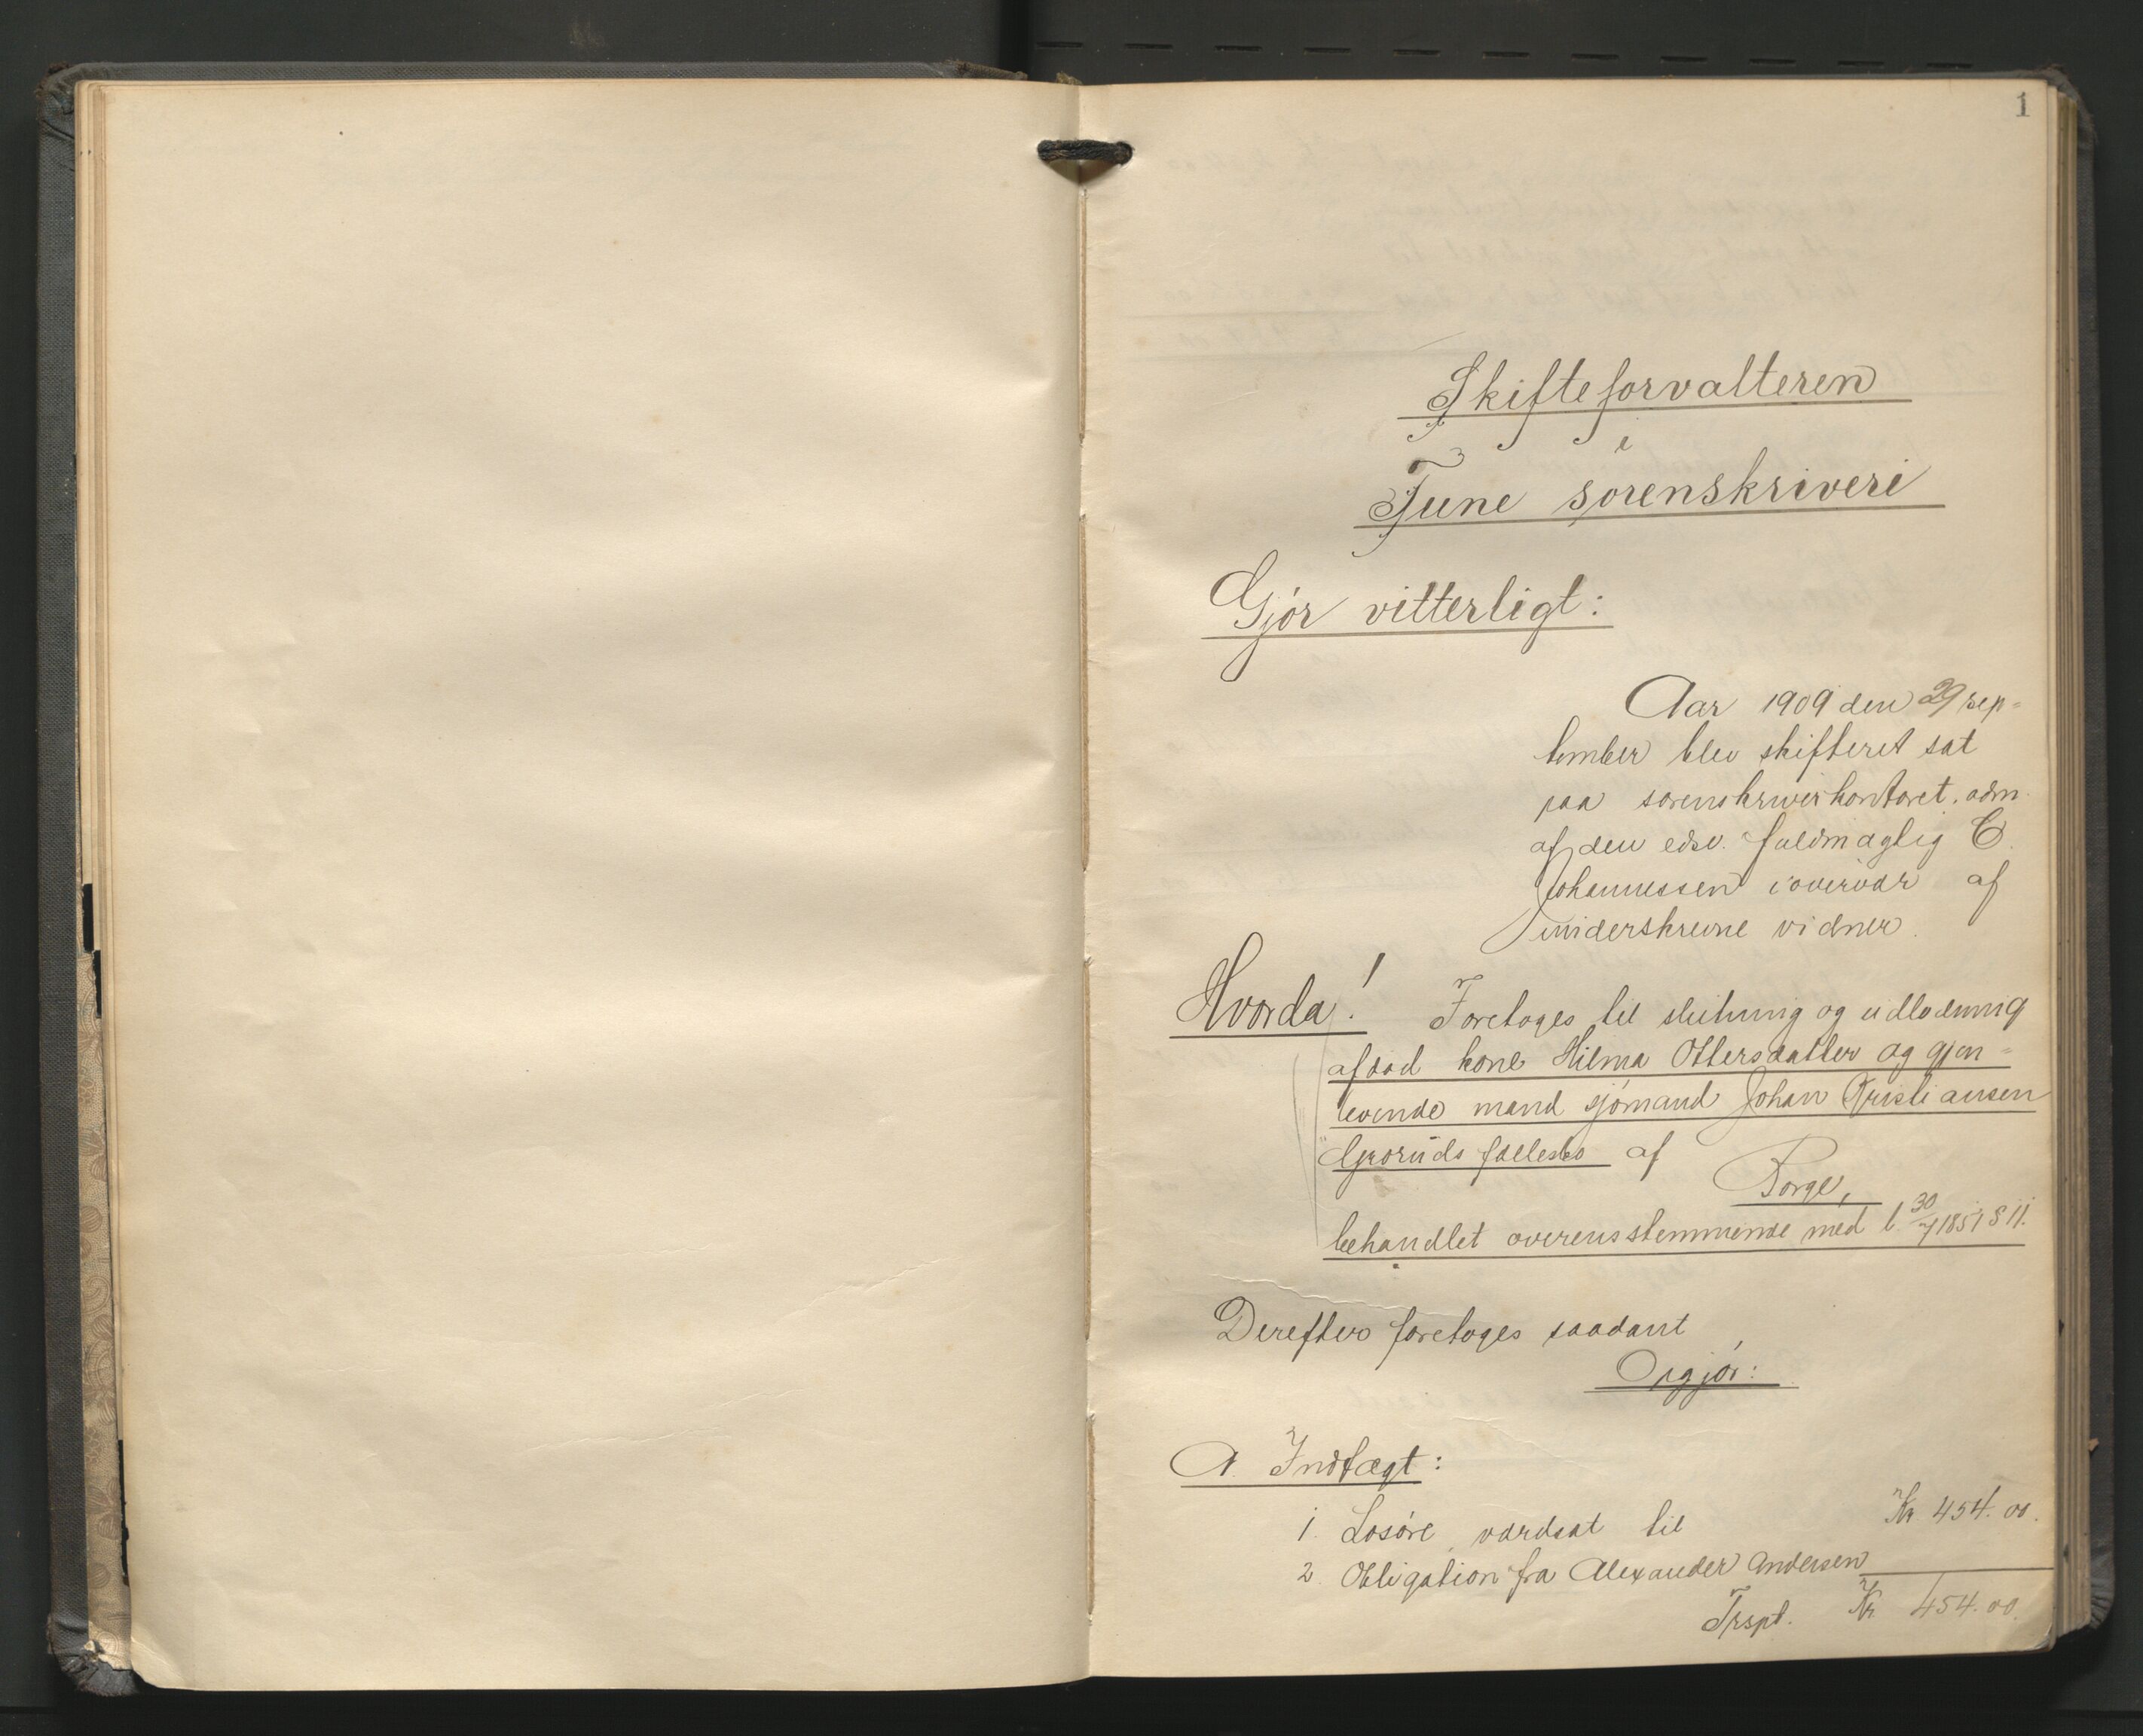 1
Skifteforvalteren
i
Tune sorenskriveri
Gjør vitterligt:
Aar 1909 den 29 sep-
tember blev skifteret sat
paa sorenskriverkontoret, adm.
af den edsv. fuldmægtig C.
Johannessen i overvær af
underskrevne vidner.
Hvorda! Foretoges til slutning og udlodning
afdød kone Hilma Ottersdatter og gjen-
levende mand sjømand Johan Kristiansen
Grøruds fællesbo af
Borge,
behandlet overensstemmende med l. 30/7 1851 § 11.
Derefter foretoges saadant
Opgjør:
A. Indtægt:
1. Løsøre, værdsat til Kr. 454.00.
2. Obligation fra Alexander Andersen
Trspt. Kr 454.00.